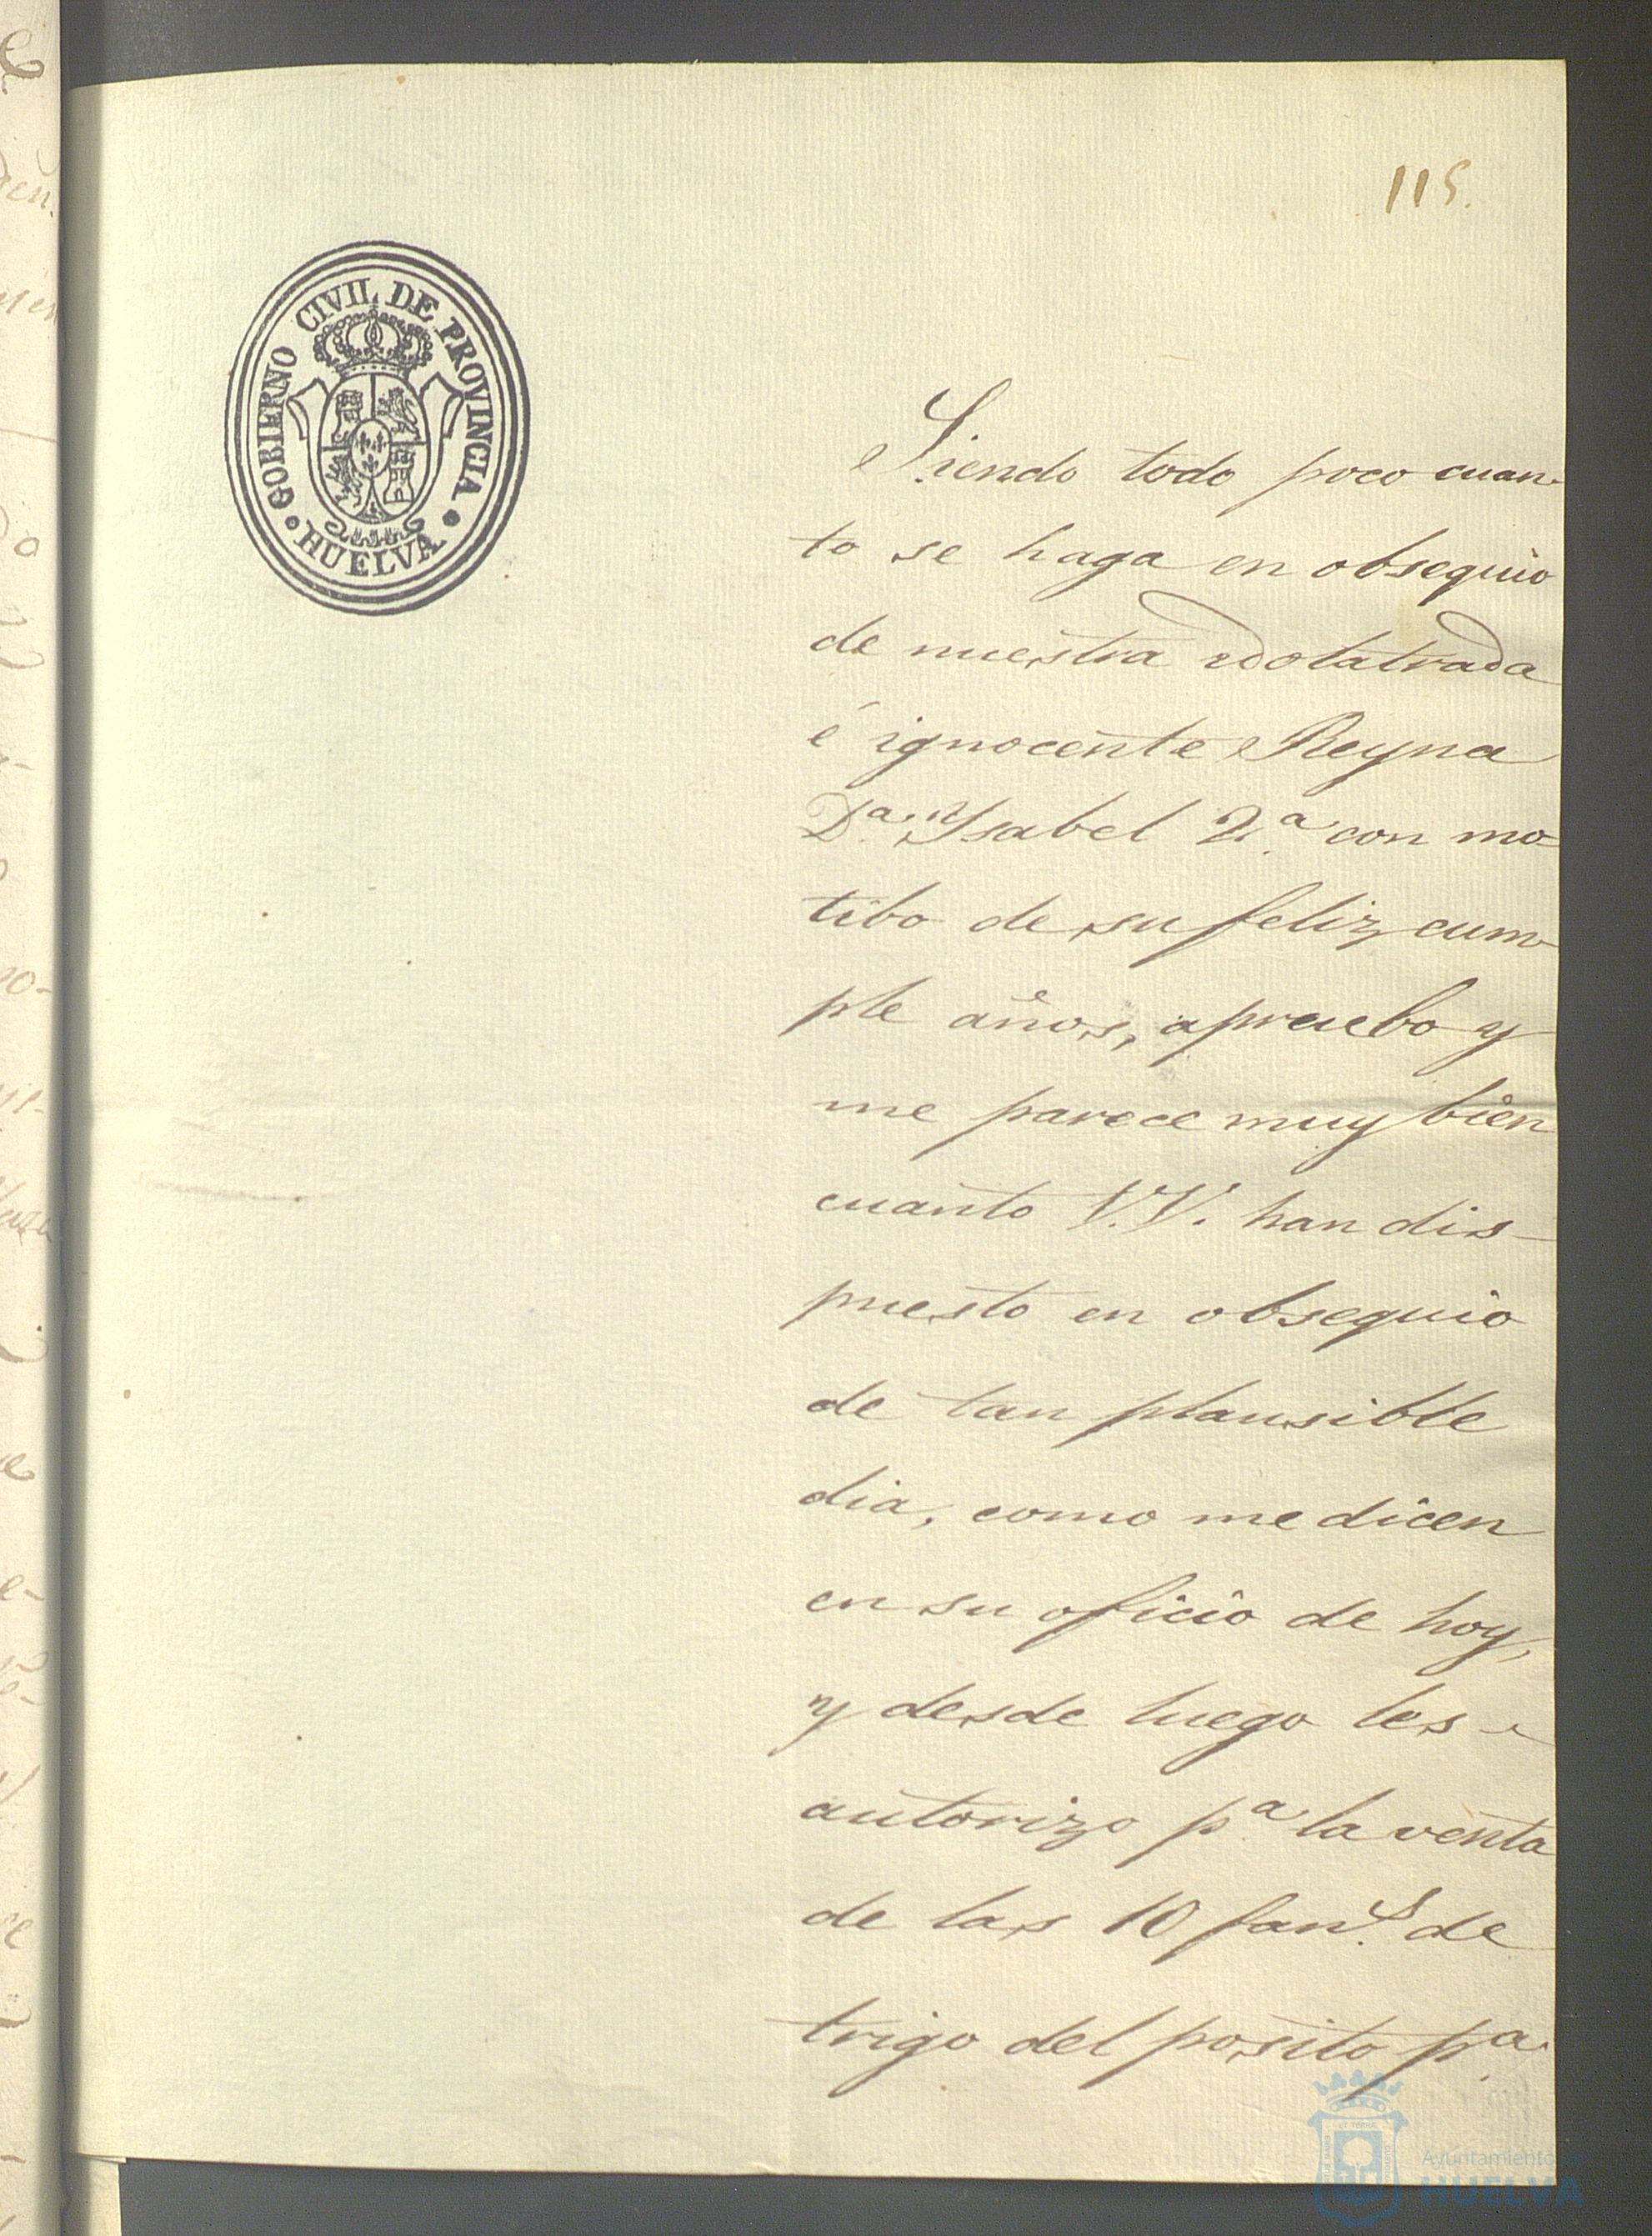 115.
GOBIERNO CIVIL DE PROVINCIA
HUELVA
Siendo todo poco cuan-
to se haga en obsequio
de nuestra idolatrada
é ignocente Reyna
D.ª Ysabel 2.ª con mo=
tibo de su feliz cum-
ple años, apruebo y
me parece muy bien
cuanto V.V. han dis-
puesto en obsequio
de tan plausible
dia, como me dicen
en su oficio de hoy,
y desde luego les
autorizo p.ª la venta
de las 10 fan.s de
trigo del posito p.ª
Ayuntamiento de
HUELVA